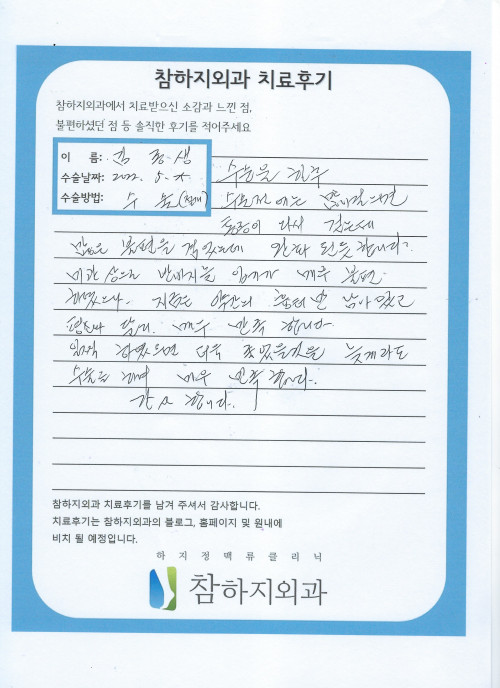 참하지외과 치료후기
참하지외과에서 치료받으신 소감과 느낀 점,
불편하셨던 점 등 솔직한 후기를 적어주세요
이 름: 김
수술날짜: 2022. 5.
수술방법: 수술
수술을 한후
수술전에는
통증이 다시
많은 불편을 겪었는데
미관상으로 반바지를 입기가 매우 불편
하였으나 지금은 약간의 흉터만 남아있고
매우 만족 합니다
일찍 하였으면 더욱 좋았을것을 늦게라도
수술을 하여 매우 만족 합니다.
감사 합니다.
참하지외과 치료후기를 남겨 주셔서 감사합니다.
치료후기는 참하지외과의 블로그, 홈페이지 및 원내에
비치 될 예정입니다.
하지정맥류클리닉
참하지외과